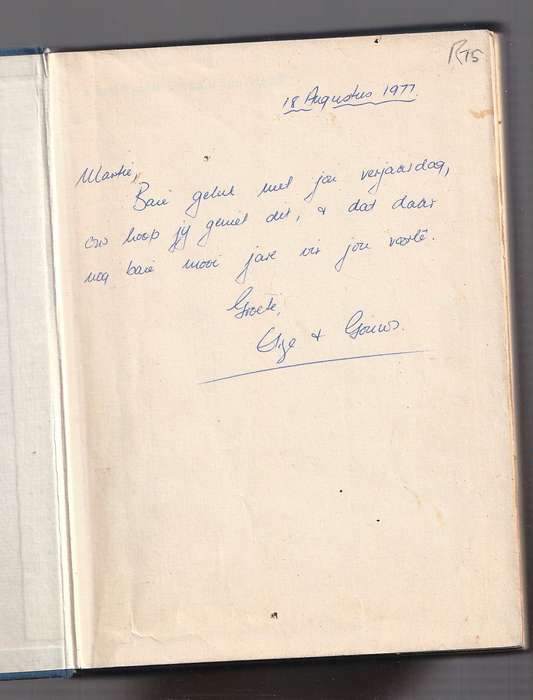 R15
18 Augustus 1977
Martie,
Baie geluk met jou verjaarsdag,
ons hoop jy geniet dit, & dat daar
nog baie mooi jare vir jou voorlê.
Groete,
Elze & Gouws.